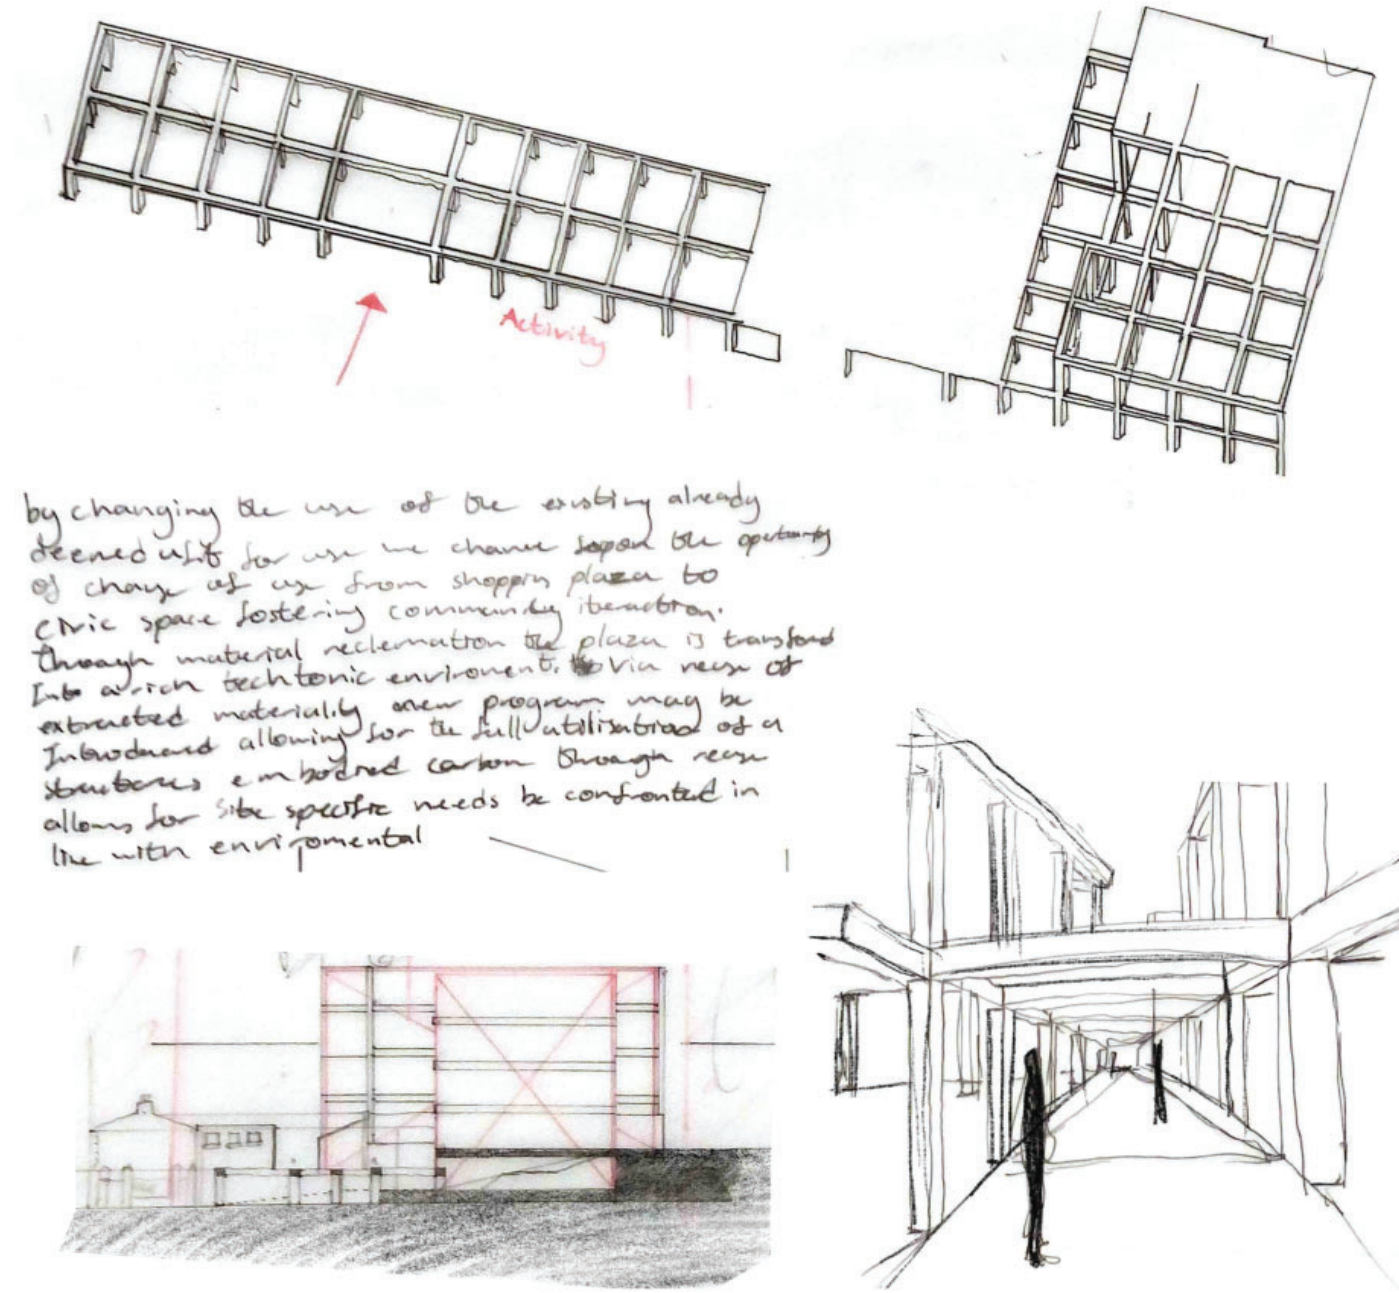 Activity
by changing the use of the existing already
deemed ufit for use we chance upon the
of change of use from shoppin plaza to
civic space fostering community iteraction.
through material reclemation the plaza is transfomd
Into a rich techtonic enviroment. Via reuse of
extracted materiality new program may be
Introduced allowing for the full utilisation of a
structures embodied carbon through reuse
allows for site specific needs be confronted in
line with enviromental